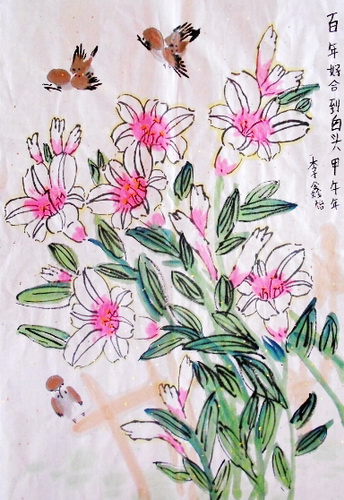 百年好合到白头甲午年
李鑫怡